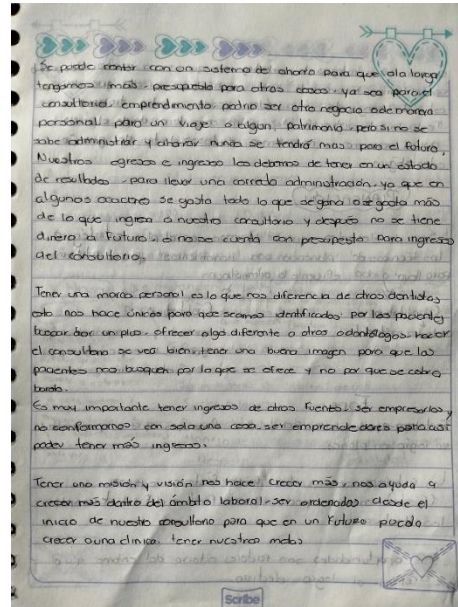 Se puede contar con un sistema de ahorro para que a la larga
tengamos más presupuesto para otras cosas, ya sea para el
consultorio, emprendimiento podria ser otro negocio o de manera
personal para un viaje o algun patrimonio pero si no se
sabe administrar y ahorrar nunca se tendrá mas para el futuro,
Nuestros egresos e ingresos los debemos de tener en un estado
de resultados para llevar una correcta administración, ya que en
algunas ocaciones se gasta todo lo que se gana o se gasta más
de lo que ingresa a nuestro consultorio y después no se tiene
dinero a Futuro, o no se cuenta con presupuesto para ingresos
del consultorio.
Tener una marca personal es lo que nos diferencia de otros dentistas
esto nos hace únicos para que seamos identificados por los pacientes
buscar dar un plus, ofrecer algo diferente a otros odontólogos, hacer
el consultorio se vea bien, tener una buena imagen para que los
pacientes nos busquen por lo que se ofrece y no por que se cobra
barato.
Es muy importante tener ingresos de otras Fuentes, ser empresarios y
no conformarnos con solo una cosa, ser emprendedores para así
poder tener más ingresos.
Tener una misión y visión nos hace crecer más, nos ayuda a
crecer más dentro del ámbito laboral, ser ordenados desde el
inicio de nuestro consultorio para que en un Futuro pueda
crecer a una clinica, tener nuestras metas
Scribe